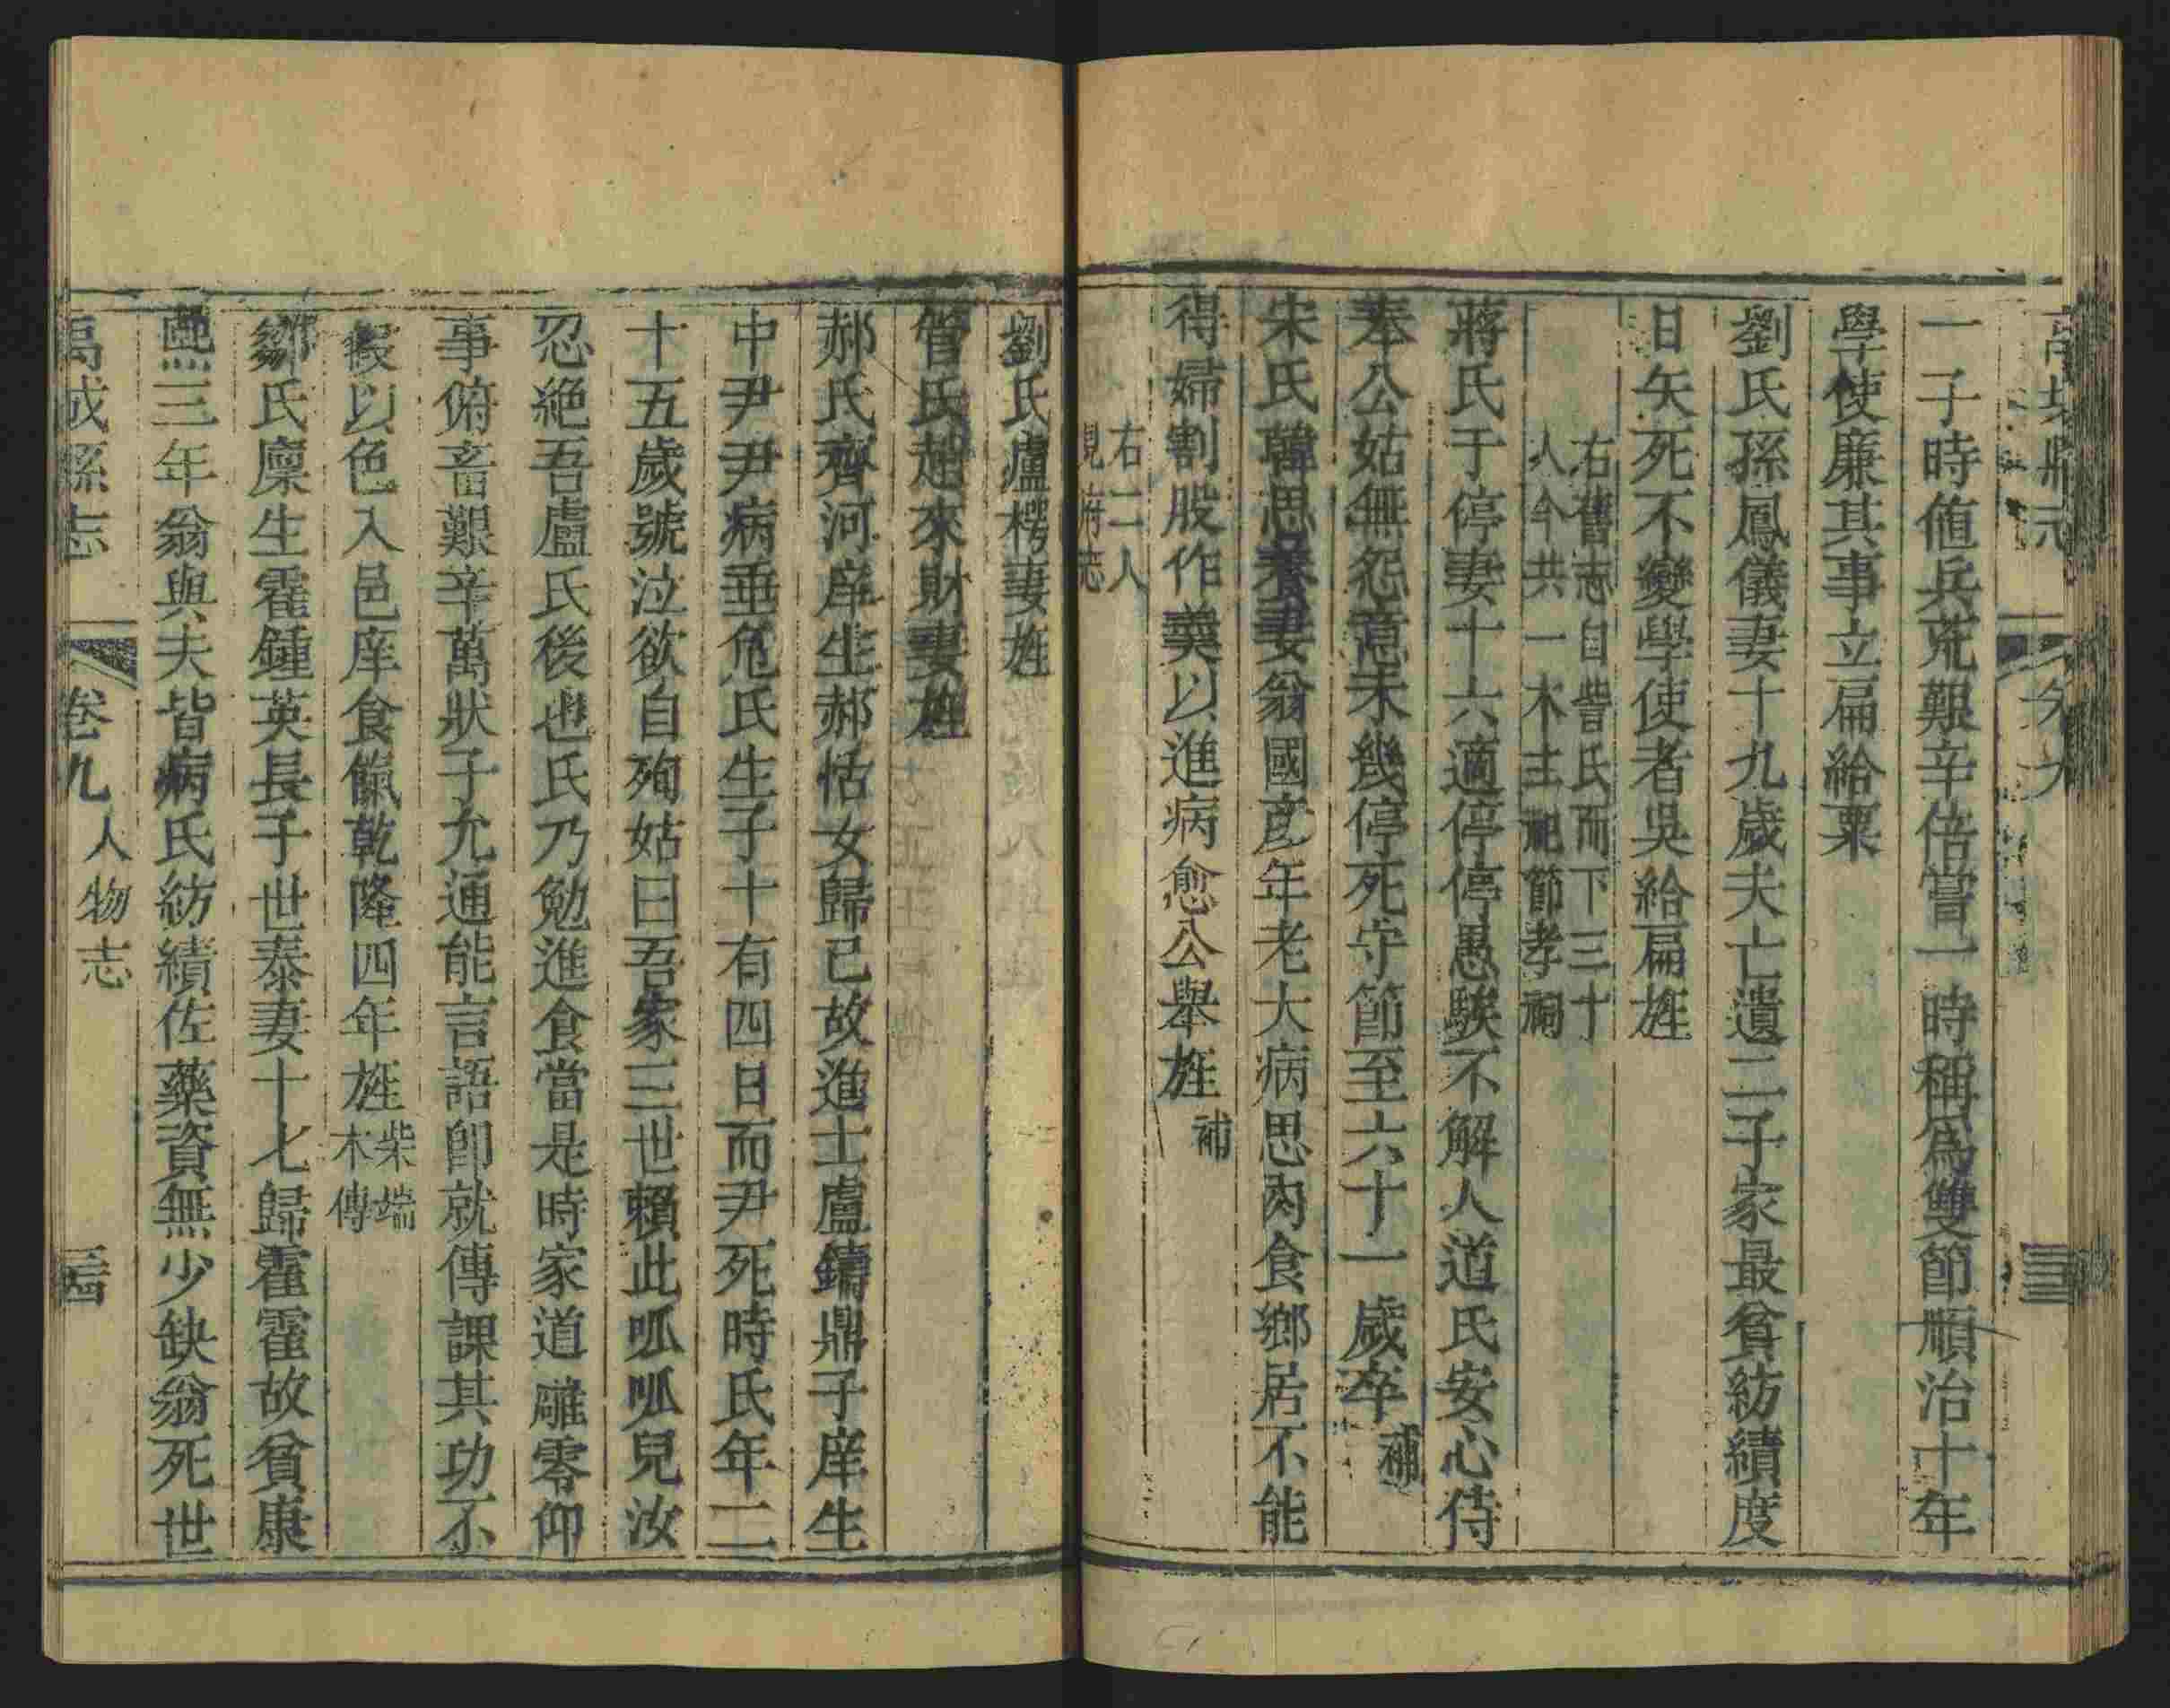 一子時値兵荒艱辛倍嘗一時稱為雙節順治十年
學使廉其事立扁給粟
劉氏孫鳳儀妻十九歲夫亡遺二子家最貧紡績度
日矢死不變學使者吳給扁旌
右舊志自訾氏而下三十
人今共一木主祀節孝祠
蔣氏于停妻十六適停停愚騃不解人道氏安心侍
奉公姑無怨意未幾停死守節至六十一歲卒補
朱氏韓思養妻翁國彥年老大病思肉食鄉居不能
得婦割股作羹以進病愈公舉旌補
右二人
見府志
劉氏盧楞妻旌
管氏趙來財妻旌
郝氏齊河庠生郝恬女歸已故進士盧鑄鼎子庠生
中尹尹病垂危氏生子十有四日而尹死時氏年二
十五歲號泣欲自殉姑曰吾家三世賴此呱呱兒汝
忍絶吾盧氏後也氏乃勉進食當是時家道雕零仰
事俯畜艱辛萬狀子允通能言語卽就傳課其功不
假以色入邑庠食餼乾隆四年旌柴端
木傳
鄒氏廩生霍鍾英長子世泰妻十七歸霍霍故貧康
熙三年翁與夫皆病氏紡績佐藥資無少缺翁死世
禹城縣志 卷九 人物志 三四